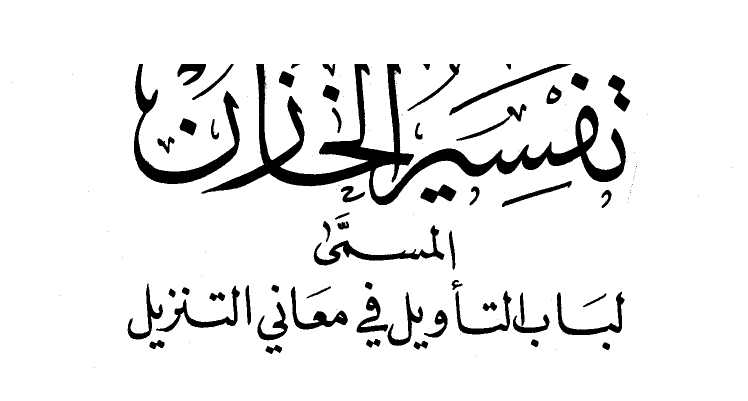 تفسير الخازن
المسمى
لباب التأويل في معاني التنزيل